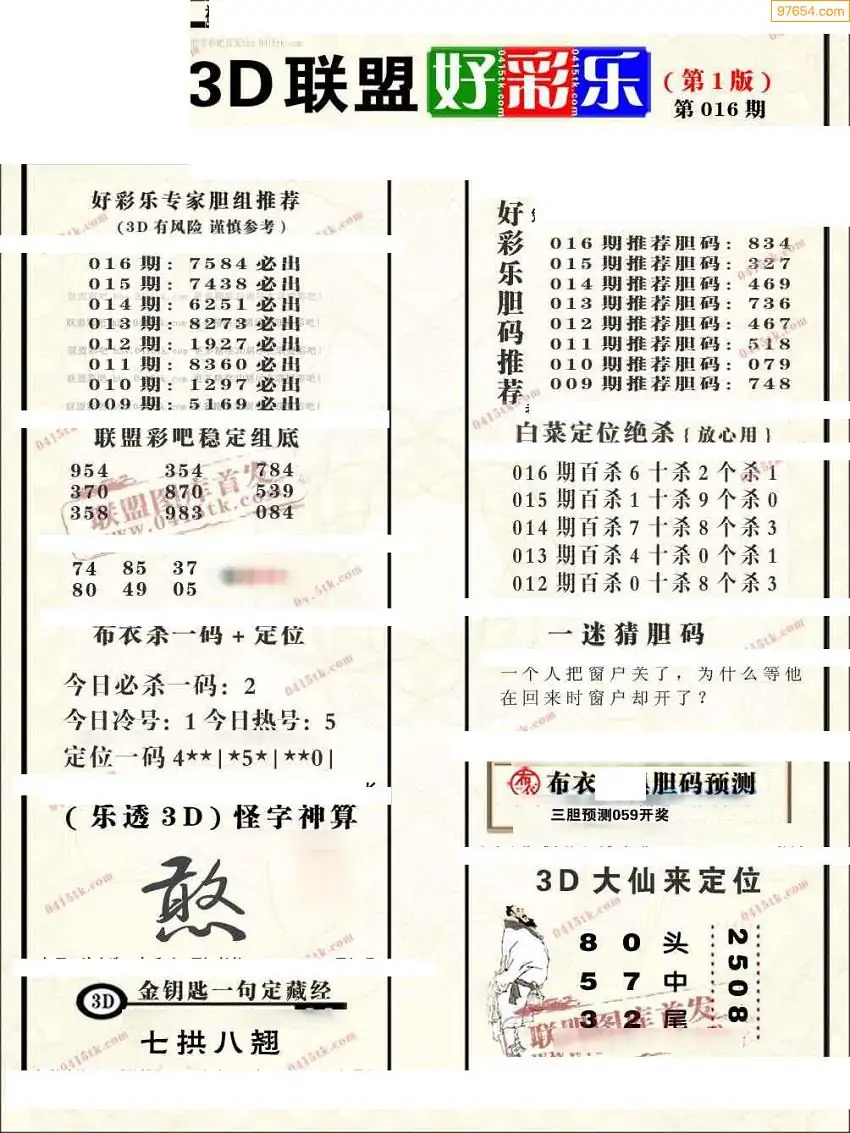 97654.com
3D联盟好彩乐
(第1版)
第016期
好彩乐专家胆组推荐
(3D有风险 谨慎参考)
016期: 7584必出
015期: 7438必出
014期: 6251必出
013期: 8273必出
012期: 1927必出
011期: 8360必出
010期: 1297必出
009期: 5169必出
联盟彩吧稳定组底
954 354 784
370 870 539
358 983 084
联盟图库首发
www.0415tk.com
74 85 37
80 49 05
布衣杀一码+定位
今日必杀一码: 2
今日冷号: 1 今日热号: 5
定位一码 4**|*5*|**0|
(乐透3D) 怪字神算
憨
3D 金钥匙一句定藏经
七拱八翘
好彩乐胆码推荐
016期推荐胆码: 834
015期推荐胆码: 327
014期推荐胆码: 469
013期推荐胆码: 736
012期推荐胆码: 467
011期推荐胆码: 518
010期推荐胆码: 079
009期推荐胆码: 748
白菜定位绝杀{放心用}
016期百杀6十杀2个杀1
015期百杀1十杀9个杀0
014期百杀7十杀8个杀3
013期百杀4十杀0个杀1
012期百杀0十杀8个杀3
一迷猜胆码
一个人把窗户关了，为什么等他
在回来时窗户却开了？
布衣 胆码预测
三胆预测059开奖
3D大仙来定位
8 0 头
5 7 中
3 2 尾
2508
联盟图库首发